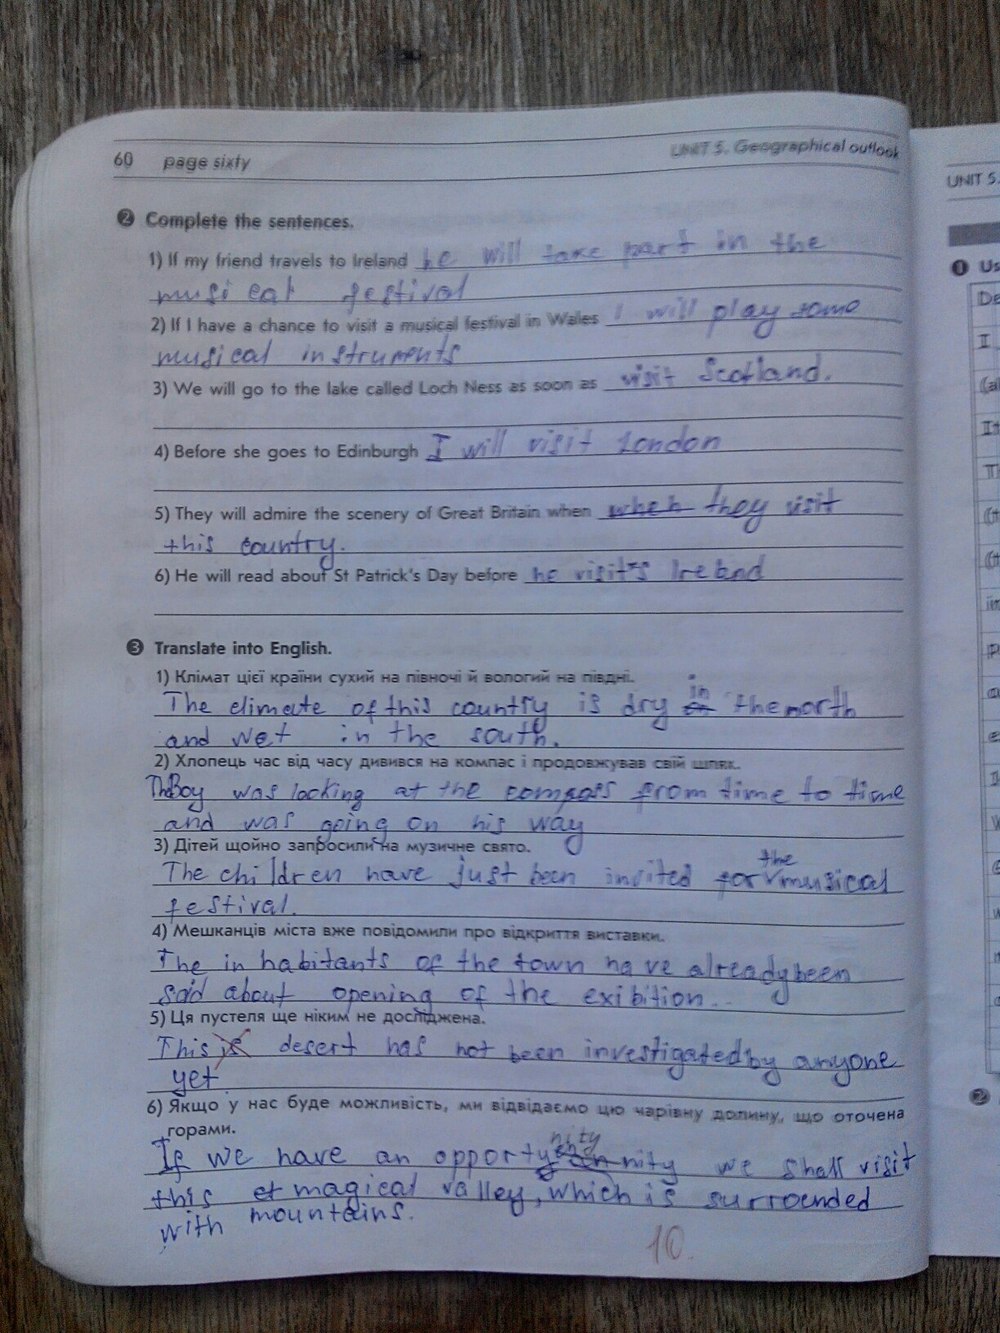 60 page sixty UNIT 5. Geographical outlook
2 Complete the sentences.
1) If my friend travels to Ireland he will take part in the
musical festival
2) If I have a chance to visit a musical festival in Walles I will play some
musical instruments
3) We will go to the lake called Loch Ness as soon as visit Scotland.
4) Before she goes to Edinburgh I will visit London
5) They will admire the scenery of Great Britain when when they visit
this country.
6) He will read about St Patrick's Day before he visits Irelend
3 Translate into English.
1) Клімат цієї країни сухий на півночі й вологий на півдні.
in
The climate of this country is dry the north
and wet in the south.
2) Хлопець час від часу дивився на компас і продовжував свій шлях.
The Boy was looking at the compass from time to time
and was going on his way
3) Дітей щойно запросили на музичне свято.
the
The children have just been invited for musical
festival.
4) Мешканців міста вже повідомили про відкриття виставки.
The inhabitants of the town have already been
said about opening of the exibition..
5) Ця пустеля ще ніким не досліджена.
This is desert has not been investigated by anyone
yet
6) Якщо у нас буде можливість, ми відвідаємо цю чарівну долину, що оточена
горами.
nity
If we have an opporty nity we shall visit
this magical valley, which is surrounded
with mountains.
10.
UNIT 5.
1 Us
De
I
(al
It
(t
(t
2